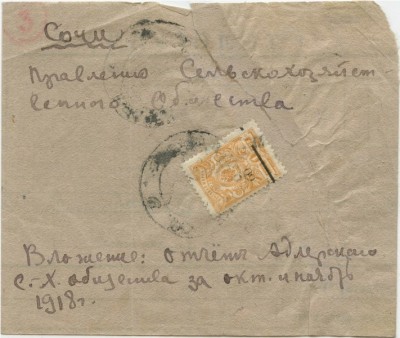 3
Сочи
Правлению Сельскохозяйст
венного Общества
Вложение: отчётъ Адлерскаго
с.-х. общества за окт. и ноябрь
1918 г.